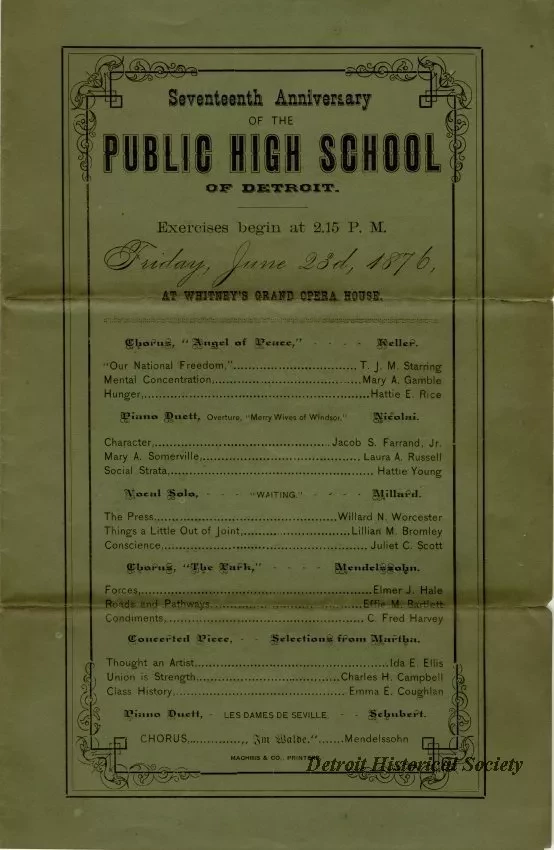 Seventeenth Anniversary
OF THE
PUBLIC HIGH SCHOOL
OF DETROIT.
Exercises begin at 2.15 P. M.
Friday, June 23d, 1876,
AT WHITNEY'S GRAND OPERA HOUSE.
Chorus, "Angel of Peace," - - - - Keller.
"Our National Freedom,"................................. T. J. M. Starring
Mental Concentration,........................................Mary A. Gamble
Hunger,............................................................Hattie E. Rice
Piano Duett, Overture, "Merry Wives of Windsor," Nicolai.
Character,................................................Jacob S. Farrand, Jr.
Mary A. Somerville,........................................... Laura A. Russell
Social Strata,...................................................... Hattie Young
Vocal Solo, - - - "WAITING." - - - - Millard.
The Press,.................................................Willard N. Worcester
Things a Little Out of Joint,..............................Lillian M. Bromley
Conscience,...................................................Juliet C. Scott
Chorus, "The Park," - - - - Mendelssohn.
Forces,............................................................Elmer J. Hale
Roads and Pathways,......................................Effie M. Bartlett
Condiments,................................................... C. Fred Harvey
Concerted Piece, - - Selections from Martha.
Thought an Artist,....................................................Ida E. Ellis
Union is Strength,.......................................Charles H. Campbell
Class History,............................................ Emma E. Coughlan
Piano Duett, - LES DAMES DE SEVILLE. - - Schubert.
CHORUS,..............,, Im Walde.".......Mendelssohn
MACHRIS & CO., PRINTERS.
Detroit Historical Society